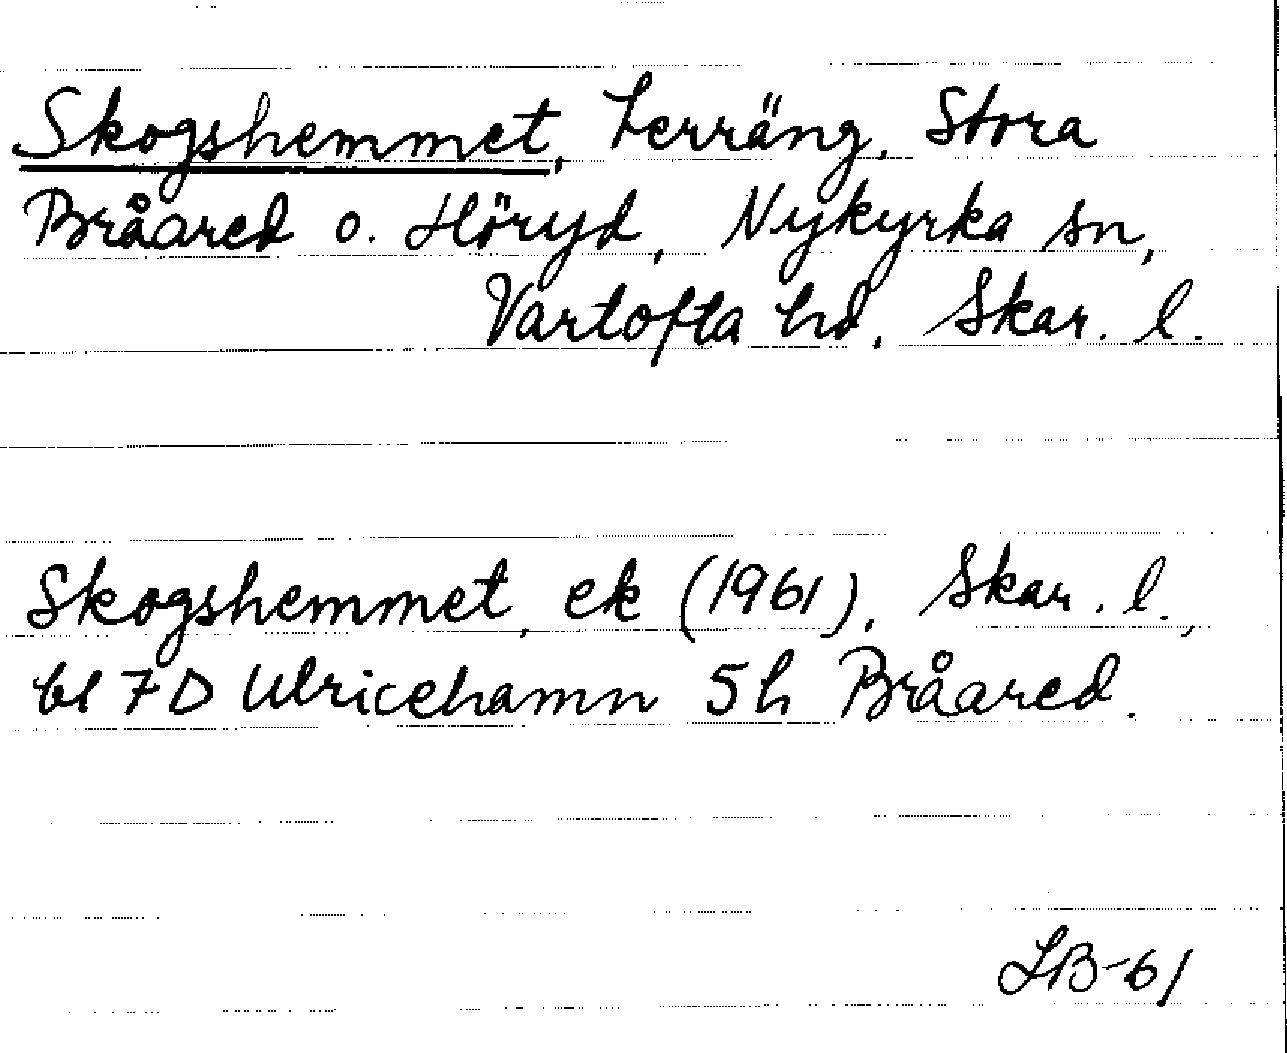 Skogshemmet, terräng, Stora
Bråared o. Höryd, Nykyrka sn,
Vartofta hd, Skar. l.
Skogshemmet, ek (1961), Skar. l.,
bl 7D Ulricehamn 5h Bråared.
LB-61